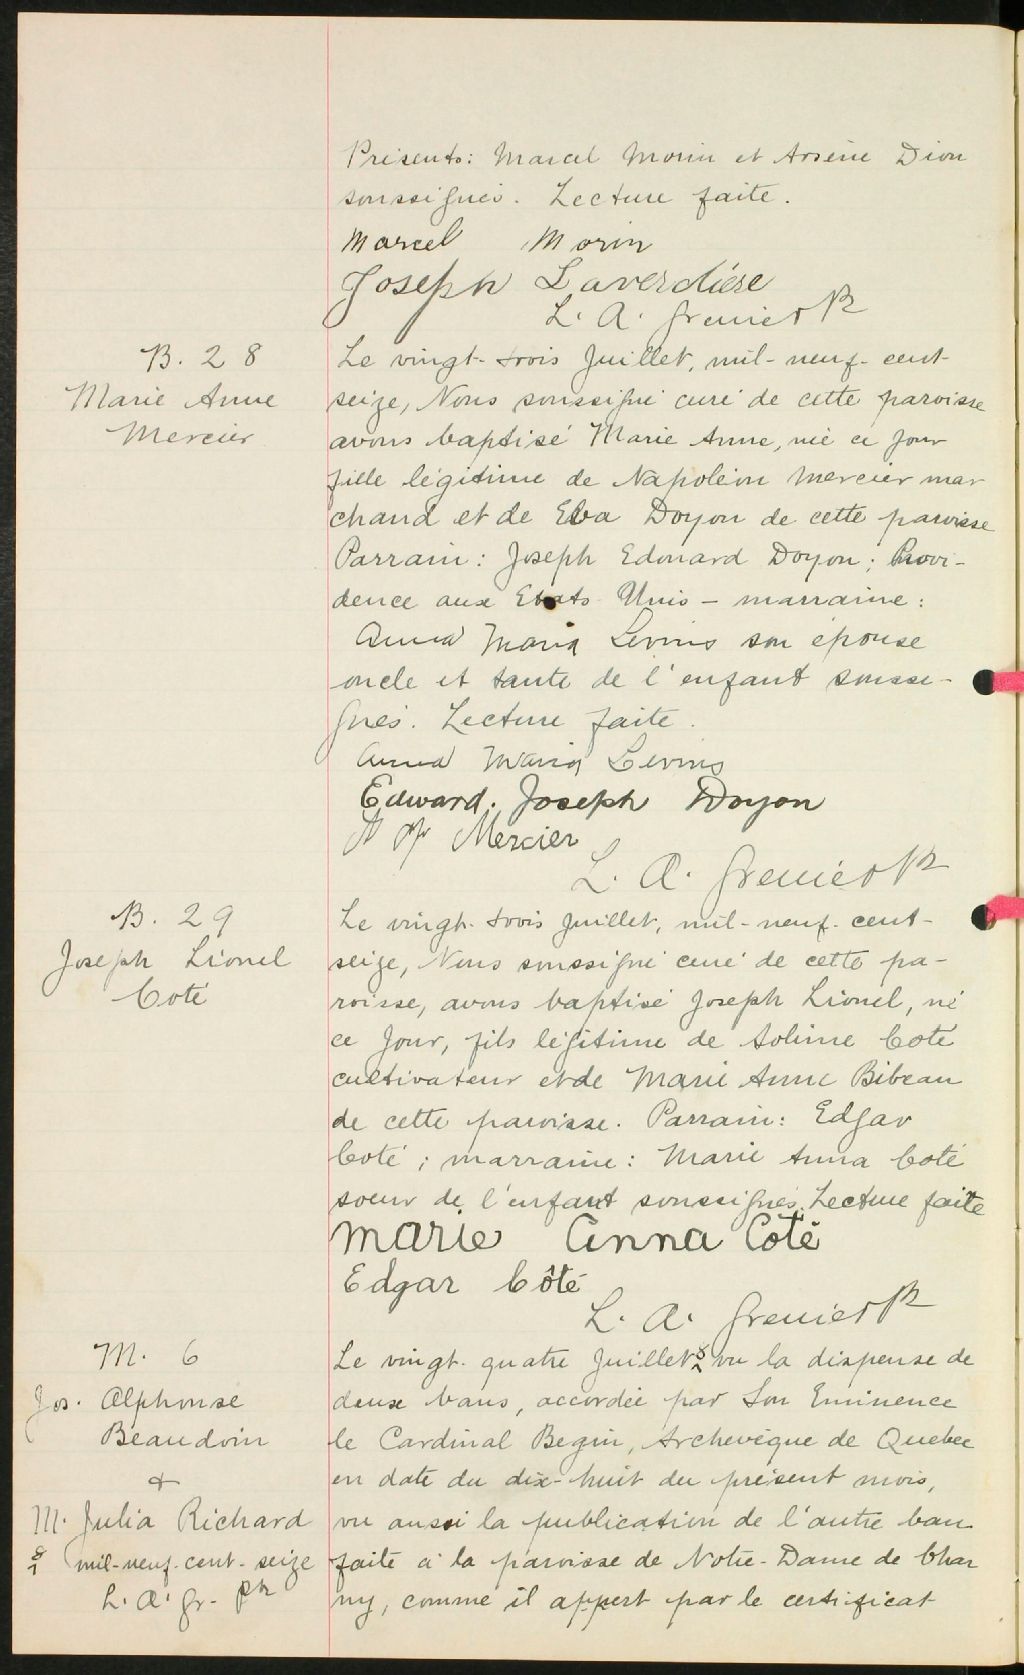 Présents: Marcel Morin et Arsène Dion
soussignés. Lecture faite.
Marcel Morin
Joseph Laverdière
L. A. Grenier Ptr
B. 28
Marie Anne
Mercier
Le vingt-trois Juillet, mil-neuf-cent-
seize, Nous soussigné curé de cette paroisse
avons baptisé Marie Anne, née ce jour
fille légitime de Napoléon Mercier mar
chand et de Eva Doyon de cette paroisse
Parrain: Joseph Edouard Doyon; Provi-
dence aux Etats Unis - marraine:
Anna Maria Levins son épouse
oncle et tante de l'enfant soussi-
gnés. Lecture faite.
Anna Maria Levins
Edward. Joseph Doyon
Mercier
L. A. Grenier Ptr
B. 29
Joseph Lionel
Coté
Le vingt-trois Juillet, mil-neuf-cent-
seize, Nous soussigné curé de cette pa-
roisse, avons baptisé Joseph Lionel, né
ce jour, fils légitime de Solime Coté
cultivateur et de Marie Anne Bibeau
de cette paroisse. Parrain: Edgar
Coté; marraine: Marie Anna Coté
soeur de l'enfant soussignés. Lecture faite
Marie Anna Coté
Edgar Côté
L. A. Grenier Ptr
M. 6
Jos. Alphonse
Beaudoin
&
M. Julia Richard
mil-neuf-cent-seize
L. A. Gr- ptr
Le vingt-quatre Juillet vu la dispense de
deux bans, accordée par Son Eminence
le Cardinal Begin, Archevêque de Quebec
en date du dix-huit du présent mois,
vu aussi la publication de l'autre ban
faite à la paroisse de Notre-Dame de Char
ny, comme il appert par le certificat